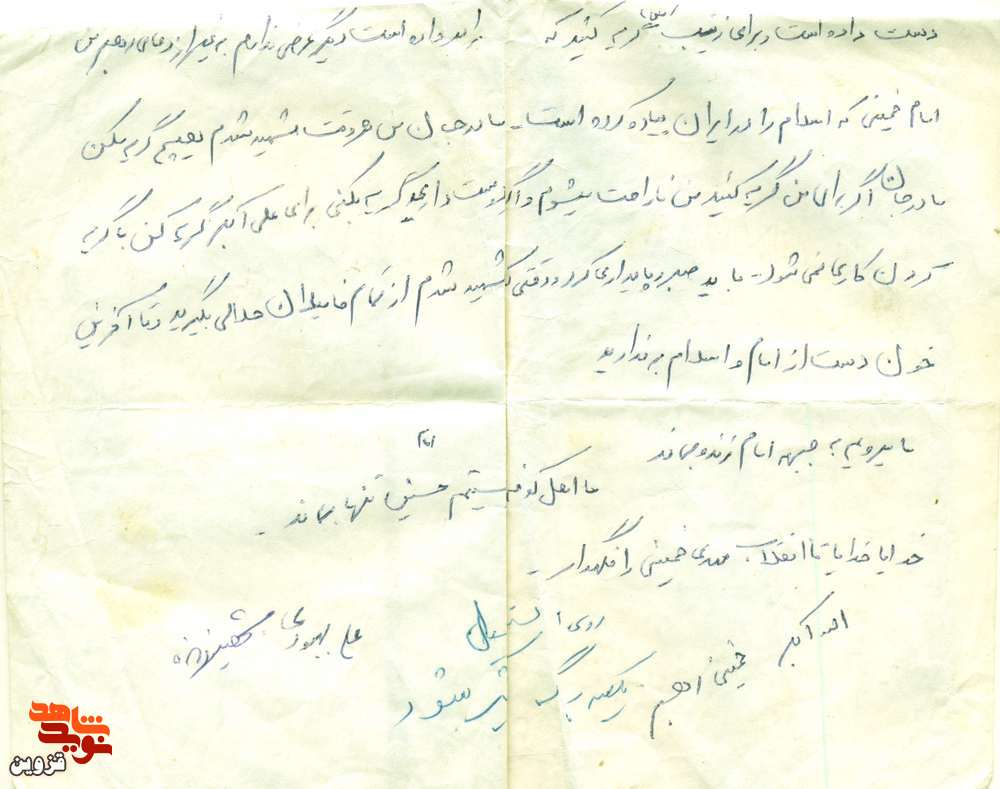 دست داده است و برای زینب گریه کنید که برادر داده است دیگر عرضی ندارم به غیر از دعای رهبر من
امام خمینی که اسلام را در ایران پیاده کرده است. مادر جان من هر وقت شهید شدم هیچ گریه مکن
مادر جان اگر برای من گریه کنید من ناراحت میشوم و اگر دوست داری گریه بکنی برای علی اکبر گریه کن با گریه
کردن کاری نمی شود. باید صبر و پایداری کرد و وقتی شهید شدم از تمام فامیلان حلالی بگیرید و تا آخرین
خون دست از امام و اسلام برندارید
ما میرویم به جبهه امام زنده بماند
ما اهل کوفه نیستیم حسین تنها بماند
امام
خدایا خدایا تا انقلاب مهدی خمینی را نگهدار
الله اکبر خمینی رهبر
علی بهبودی
روی
برگ تکثیر بشود
شاهد
نوید
قزوین